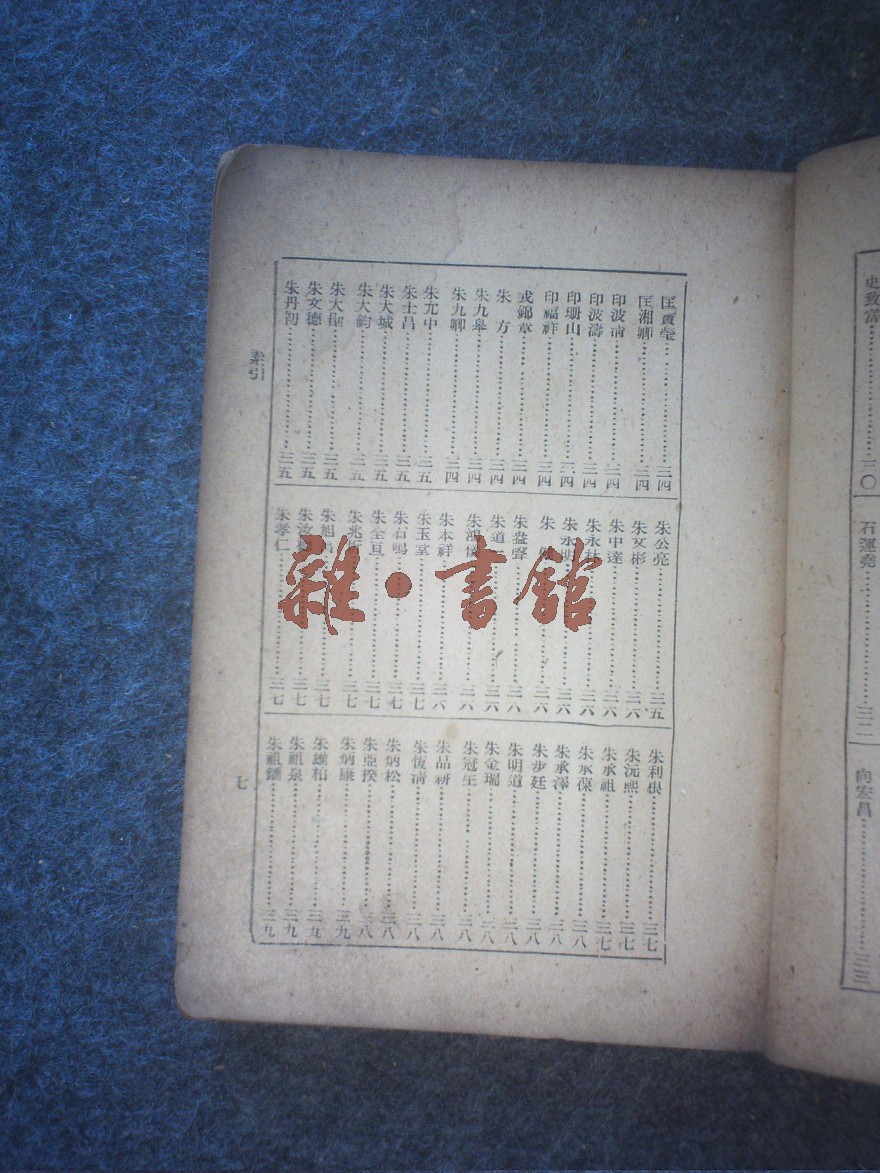 匡寶瑩…………三四
匡湘卿…………三四
印波清…………三四
印波濤…………三四
印珊山…………三四
印福祥…………三四
戎錦章…………三四
朱方…………三四
朱九皋…………三四
朱九卿…………三四
朱允中…………三五
朱士昌…………三五
朱大城…………三五
朱大鈞…………三五
朱大
…………三五
朱文德…………三五
朱丹初…………三五
朱公亮…………三五
朱文彬…………三六
朱中達…………三六
朱永
…………三六
朱永明…………三六
朱
…………三六
朱益聲…………三六
朱道
…………三六
朱鴻
…………三六
朱本祥…………三六
朱玉堂…………三七
朱石鳴…………三七
朱全亘…………三七
朱兆
…………三七
朱旭
…………三七
朱汝
…………三七
朱孝仁…………三七
朱利根…………三七
朱沅熙…………三七
朱承祖…………三七
朱承葆…………三八
朱承澤…………三八
朱步廷…………三八
朱明道…………三八
朱金瑞…………三八
朱冠生…………三八
朱品新…………三八
朱恆清…………三八
朱炳松…………三八
朱亞揆…………三八
朱炳康…………三九
朱雄柏…………三九
朱祖泉…………三九
朱祖
…………三九
索引
七
史致富…………三〇
石運堯…………三二
向宏昌…………三三
雜·書館